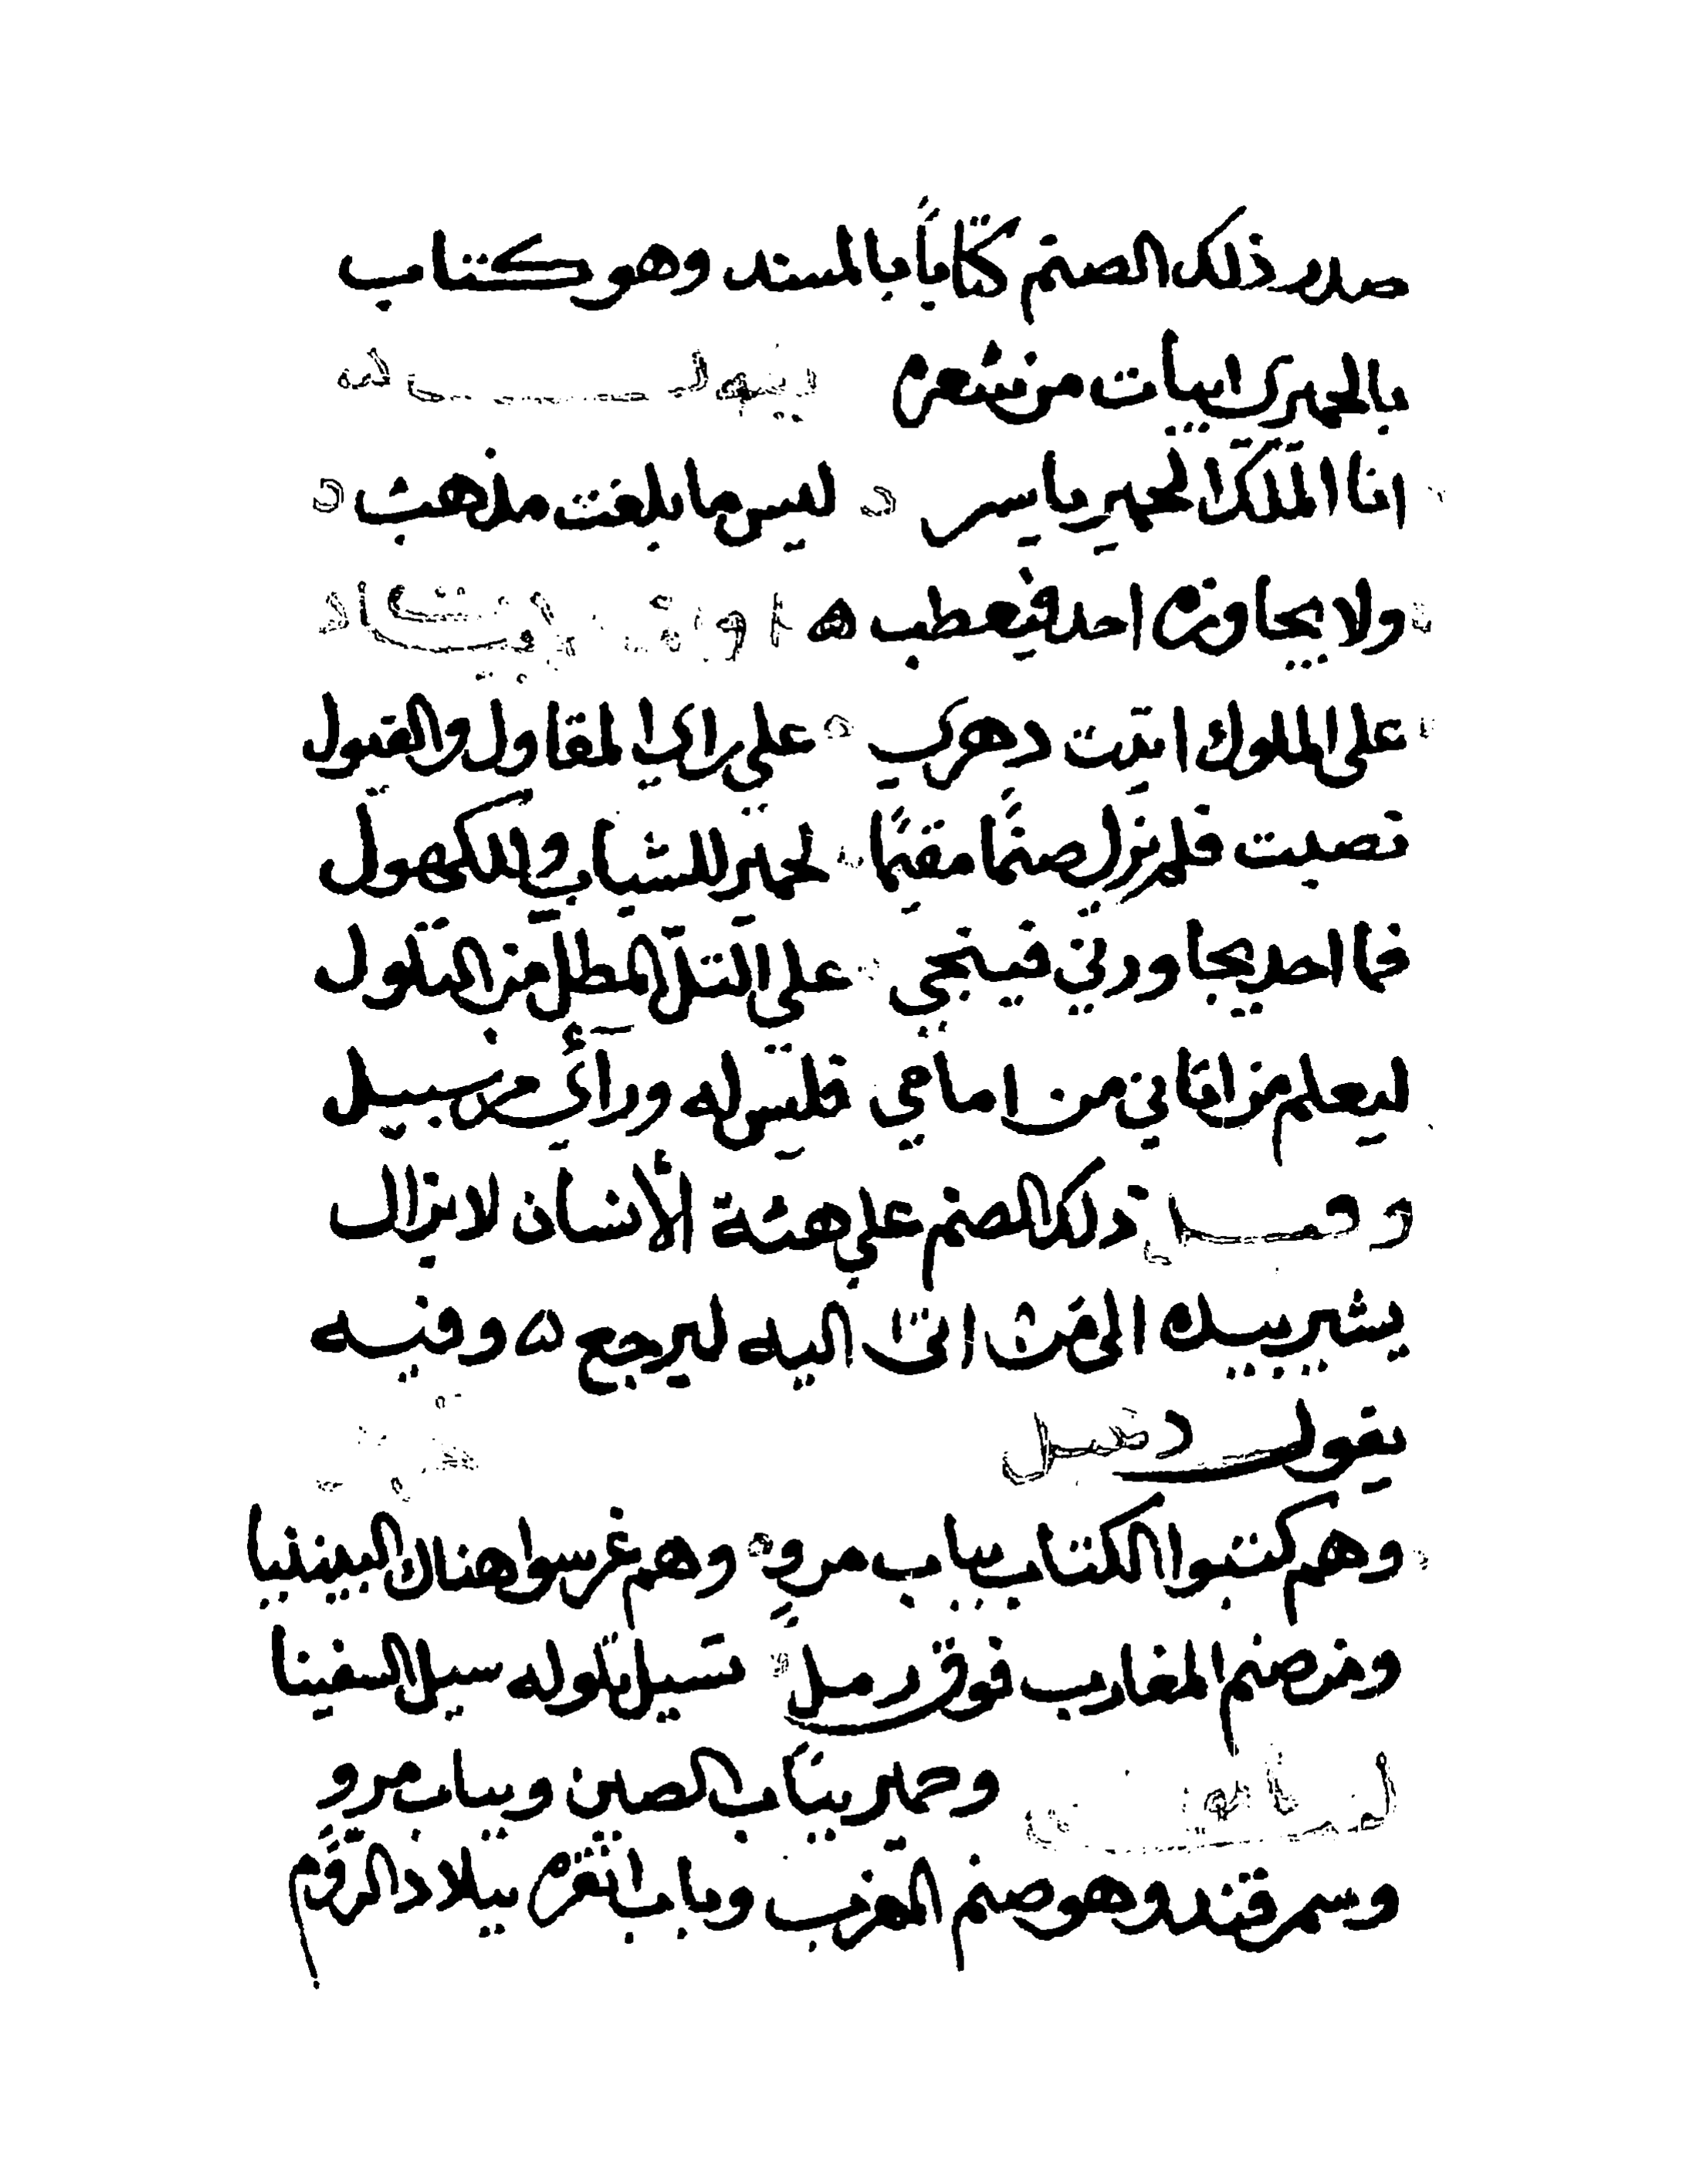 صدر ذلك الصنم كتاباً بالمسند وهو كتاب
بالحميري ابيات من شعره يقول
انا الملك الحميري ياسر ليس ما بلغت مذهب
ولا يجاوزه احد فيعطب ه
على الملوك ابيت دهري على راي المقاول والقيول
نصبت فلم يزل صنمًا مقيمًا لحمير للشباب وللكهول
فما احد يجاورني فينجي على التلّ المطلّ من التلول
ليعلم من اتاني من امامي فليس له ورآئي من سبيل
وقيل ذلك الصنم على هئة الأنسان لا يزال
يشير بيده الى مَن اتى اليه ليرجع ه وفيه
يقول دعبل
وهم كتبوا الكتاب بباب مروٍ وهم غرسوا هناك التبتينا
ومن صنم المغارب فوق رملٍ تسيل تلوله سيل السفينا
وحمير بباب الصين وبباب مرو
وسمرقند وهو صنم المغرب وباب انقره ببلاد الروم